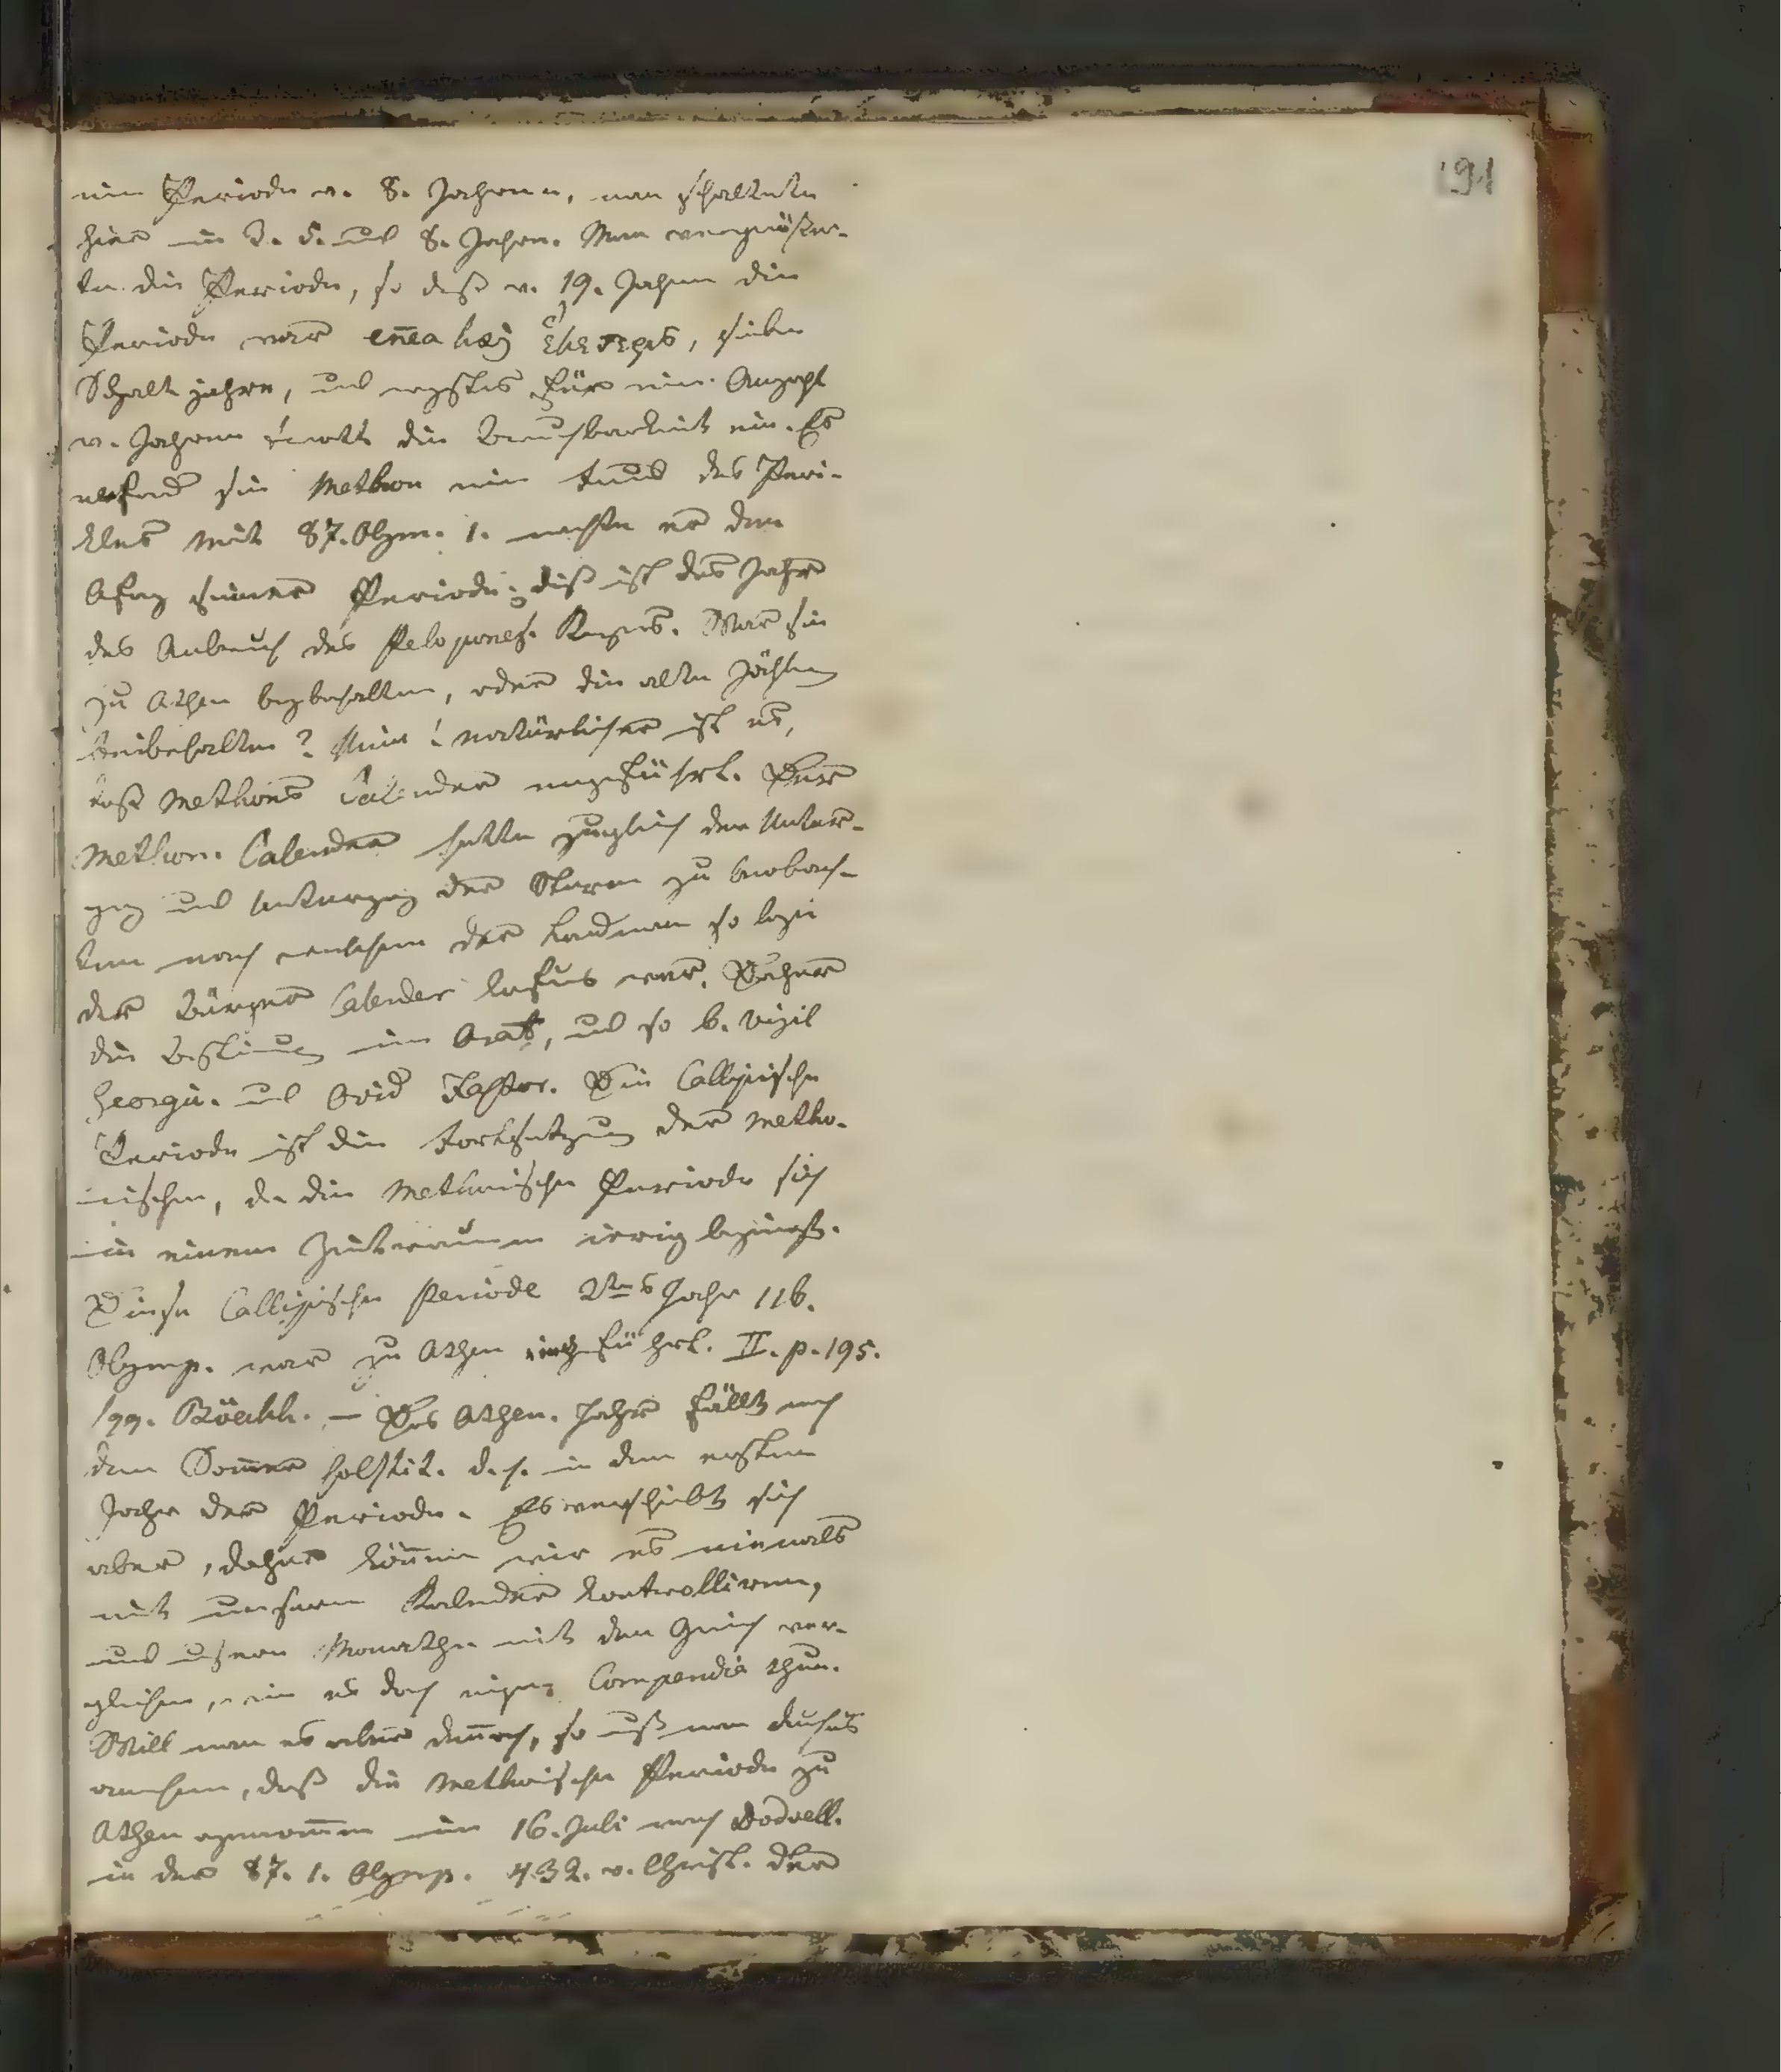 191
eine Periode v. 8. Jahren, man schaltete
hier im 3. 5. und 8. Jahre. Man vergrößer-
te die Periode, so daß v. 19. Jahren die
Periode war eñea kaj, sieben
Schalt jahre, und erstes für eine Anzahl
v. Jahren die Brauchbarkeit ein. Es
erfand sie Methon ein des Peri-
kles mit 87. Olym. 1. machte er den
Afang seiner Periode; diß ist das Jahr
des Anbruch des Pelopones. Kriegs. War sie
zu Athen beybehalten, oder die alte
beibehalten? Nein! natürlicher ist es,
daß Methons Calender eingeführt. Der
Methon. Calender hatte zugleich den Unter-
gang und der Sterne zu beobach-
ten nach welchem der Landman so
der Bürger Calender war. Daher
die Bestimung im Arat, und so b. Virgil
Georgic. und Ovid Fastor. Die Callipische
Periode ist die Fortsetzung der Metho-
nischen, da die Methonische Periode sich
in einem Zeitraume irrig
Diese Callipische Periode 2tes Jahr 116.
Olymp. war zu Athen eingeführt. II. p. 195.
sqq. Böckh. — Das Athen. Jahr fällt nach
dem Som̄er solstit. d. h. in dem ersten
Jahre der Periode. Es verschiebt sich
aber, daher kön̄en wir es niemals
mit unserm Kalender kontrolliren,
und unsere Monathe mit den Griech ver-
gleichen, wie es doch einige Compendia thun.
Will man es aber den̄och, so muß man
, daß die Methonische Periode zu
Athen agenom̄en im 16. Juli nach Dodvell.
in der 87. 1. Olymp. 432. v. Christ. der